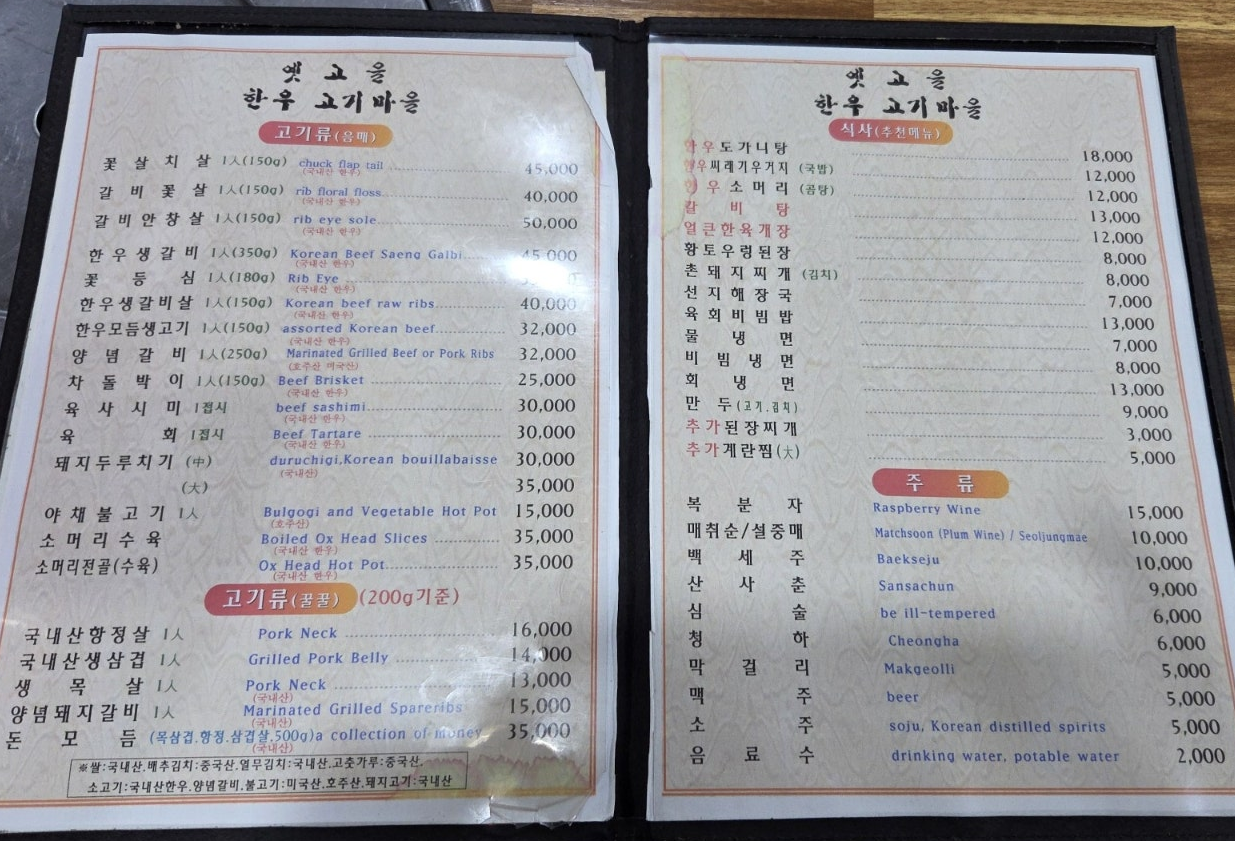 옛고을
한우 고기마을
고기류(음매)
꽃살치살 1人(150g) chuck flap tail 45,000
(국내산 한우)
갈비꽃살 1人(150g) rib floral floss 40,000
(국내산 한우)
갈비안창살 1人(150g) rib eye sole 50,000
(국내산 한우)
한우생갈비 1人(350g) Korean Beef Saeng Galbi 45,000
(국내산 한우)
꽃등심 1人(180g) Rib Eye
(국내산 한우)
한우생갈비살 1人(150g) Korean beef raw ribs 40,000
(국내산 한우)
한우모듬생고기 1人(150g) assorted Korean beef 32,000
(국내산 한우)
양념갈비 1人(250g) Marinated Grilled Beef or Pork Ribs 32,000
(호주산 미국산)
차돌박이 1人(150g) Beef Brisket 25,000
(국내산 한우)
육사시미 1접시 beef sashimi 30,000
(국내산 한우)
육회 1접시 Beef Tartare 30,000
(국내산 한우)
돼지두루치기 (中) duruchigi,Korean bouillabaisse 30,000
(국내산)
(大) 35,000
야채불고기 1人 Bulgogi and Vegetable Hot Pot 15,000
(호주산)
소머리수육 Boiled Ox Head Slices 35,000
(국내산 한우)
소머리전골(수육) Ox Head Hot Pot 35,000
(국내산 한우)
고기류(꿀꿀) (200g기준)
국내산항정살 1人 Pork Neck 16,000
국내산생삼겹 1人 Grilled Pork Belly 14,000
생목살 1人 Pork Neck 13,000
(국내산)
양념돼지갈비 1人 Marinated Grilled Spareribs 15,000
(국내산)
돈모듬 (목삼겹.항정.삼겹살.500g)a collection of money 35,000
(국내산)
※쌀:국내산.배추김치:중국산.열무김치:국내산.고춧가루:중국산.
소고기:국내산한우.양념갈비.불고기:미국산.호주산.돼지고기:국내산
옛고을
한우 고기마을
식사(추천메뉴)
한우도가니탕 18,000
한우씨래기우거지 (국밥) 12,000
한우소머리 (곰탕) 12,000
갈비탕 13,000
얼큰한육개장 12,000
황토우렁된장 8,000
촌돼지찌개 (김치) 8,000
선지해장국 7,000
육회비빔밥 13,000
물냉면 7,000
비빔냉면 8,000
회냉면 13,000
만두(고기.김치) 9,000
추가된장찌개 3,000
추가계란찜(大) 5,000
주류
복분자 Raspberry Wine 15,000
매취순/설중매 Matchsoon (Plum Wine) / Seoljungmae 10,000
백세주 Baekseju 10,000
산사춘 Sansachun 9,000
심술 be ill-tempered 6,000
청하 Cheongha 6,000
막걸리 Makgeolli 5,000
맥주 beer 5,000
소주 soju, Korean distilled spirits 5,000
음료수 drinking water, potable water 2,000